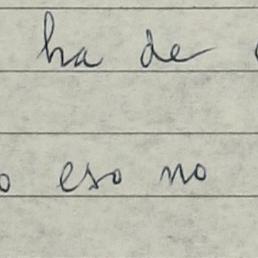 ha de
eso no